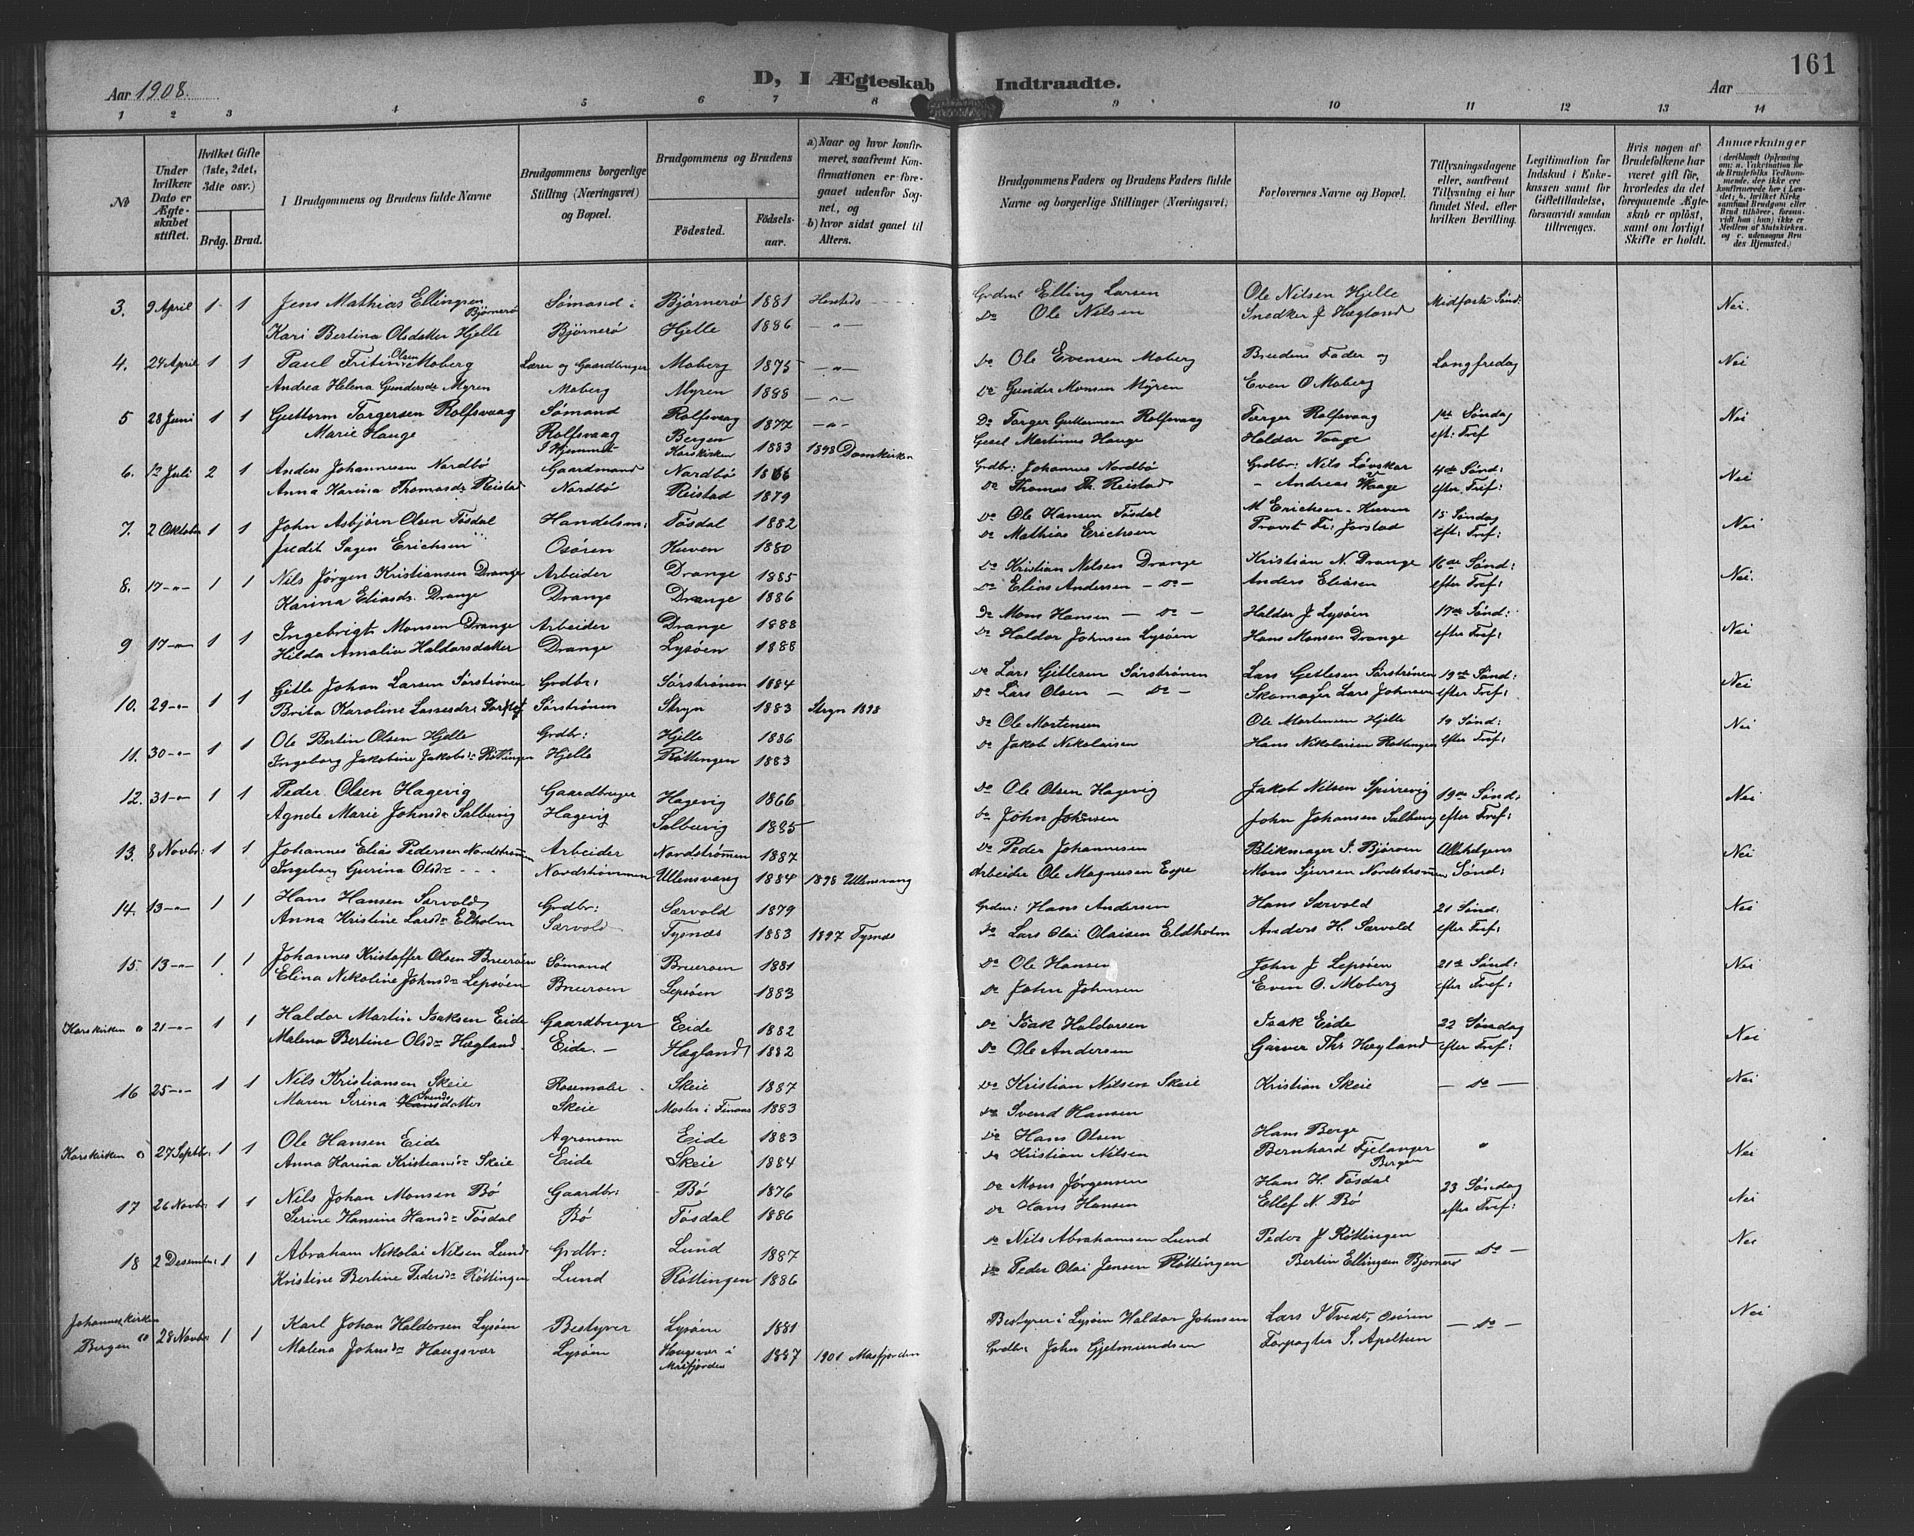 161
D, I Ægteskab Indtraadte.
Aar 1908.
Aar
1 2 3 4 5 6 7 8 9 10 11 12 13 14
No
Under hvilken Dato er Ægteskabet stiftet.
Hvilket Gifte (1ste, 2det, 3die osv.)
Brdg. Brud.
I Brudgommens og Brudens fulde Navne
Brudgommens borgerlige Stilling (Næringsvei) og Bopæl.
Brudgommens og Brudens
Födested.
Födselsaar.
a) Naar og hvor konfirmeret, saafremt Konfirmationen er foregaaet udenfor Sognet, og
b) hvor sidst gaaet til Alters.
Brudgommens Faders og Brudens Faders fulde Navne og borgerlige Stillinger (Næringsvei)
Forlovernes Navne og Bopæl.
Tillysningsdagene eller, saafremt Tillysning ei har fundet Sted, efter hvilken Bevilling.
Legitimation for Indskud i Enkekassen samt for Giftetilladelse, forsaavidt saadan tiltrænges.
Hvis nogen af Brudefolkene har været gift för, hvorledes da det foregaaende Ægteskab er oplöst, samt om lovligt Skifte er holdt.
Anmærkninger
3. 9 April 1 1 Jens Mathias Ellingsen Bjørnerö Sömand i Bjørnerö 1881 Grdm: Elling Larsen Ole Nilsen Hjelle Midfaste Sönd: Nei.
Kari Bertina Olsdatter Hjelle Bjørnerö Hjelle 1886 —"— Do Ole Nilsen Snedker J Hægland
4. 24 April 1 1 Paul Fritin Olsen Moberg Lærer og Gaardbruger Moberg 1875 —"— Do Ole Evensen Moberg Brudens Fader og Langfredag Nei
Andrea Helena Gundersdr Myren Moberg Myren 1888 —"— Do Gunder Monsen Myren Even O Moberg
5 28 Juni 1 1 Guttorm Torgersen Rolfsvaag Sömand Rolfsvaag 1877 —"— Do Torger Guttormsen Rolfsvaag Torger Rolfsvaag 1ste Söndag Nei
Marie Hauge Rolfsvaag I Hjemmet Bergen Korskirken 1883 1898 Domkirken Martinus Hauge Haldor Vaage eft: Tref
6. 12 Juli 2 1 Anders Johannesen Nordbö Gaardmand Nordbö 1866 Grdbr: Johannes Nordbö Grdbr: Nils Lövskar 4de Sönd: Nei
Anna Karina Thomasdr Reistad Nordbö Reistad 1879 Do Thomas Th. Reistad - Andreas Waage efter Tref:
7. 2 Oktober 1 1 John Asbjörn Olsen Tösdal Handelsm: Tösdal 1882 Do Ole Hansen Tösdal M Erichsen - Kuven 15 Söndag Nei
Judit Sagen Erichsen Osören Kuven 1880 Do Mathias Erichsen Provst Fr: Jorstad eft: Tref:
8. 17—"— 1 1 Nils Jörgen Kristiansen Drange Arbeider Drange 1885 Do Kristian Nilsen Drange Kristian N. Drange 16de Sönd: Nei.
Karina Eliasdr Drange Drange Drange 1886 Do Elias Andersen — Do — Anders Eliasen efter Tref:
9 17—"— 1 1 Ingebrigt Monsen Drange Arbeider Drange 1888 Do Mons Hansen — Do — Haldor J Lysöen 17de Sönd: Nei
Hilda Amalia Haldorsdatter Drange Lysöen 1888 Do Haldor Johnsen Lysöen Hans Monsen Drange efter Tref:
10. 29—"— 1 1 Gitle Johan Larsen Sörströnen Grdbr: Sörströnen 1884 Do Lars Gitlesen Sörströnen Lars Getlesen Sörströnen 19de Sönd: Nei
Brita Karoline Lassesdr Sörströnen Stryn 1883 Stryn 1898 Do Lars Olsen — Do — Skomager Lars Johnsen efter Tref:
11. 30—"— 1 1 Ole Bertin Olsen Hjelle Grdbr: Hjelle 1886 Do Ole Mortensen Ole Mortensen Hjelle 19 Sönd: Nei
Ingeborg Jakobine Jakobsdr Röttingen Hjelle Röttingen 1883 Do Jakob Nikolaisen Hans Nikolaisen Röttingen efter Tref:
12. 31—"— 1 1 Peder Olsen Hagevig Gaardbruger Hagevig 1866 Do Ole Olsen Hagevig Jakob Nilsen Spirrevig 19de Sönd: Nei
Agnete Marie Johnsdr Salbuvig Hagevig Salbuvig 1885 Do John Johnsen John Johansen Salbuvig efter Tref:
13. 8 Novbr: 1 1 Johannes Elias Pedersen Nordströmmen Arbeider Nordströmmen 1887 Do Peder Johannesen Blikmager J. Björøen Allehelgens Nei
Ingeborg Gurina Olsdr - - - Nordströmmen Ullensvang 1884 1898 Ullensvang Arbeider Ole Magnusen Espe Mons Sjursen Nordströmmen Sönd:
14. 13—"— 1 1 Hans Hansen Særvold Grdbr: Særvold 1879 Grdm: Hans Andersen Hans Særvold 21 Sönd: Nei
Anna Kristine Larsdr Eldholm Særvold Tysnæs 1883 1897 Tysnæs Do Lars Olai Olaisen Eldholm Anders H. Særvold efter Tref:
15. 13—"— 1 1 Johannes Kristoffer Olsen Brueröen Sömand Brueröen 1881 Do Ole Hansen John J Lepsöen 21de Sönd: Nei
Elina Nikoline Johnsdr Lepsöen Brueröen Lepsöen 1883 Do John Johnsen Even O. Moberg efter Tref:
Korskirken 21—"— 1 1 Haldor Martin Isaksen Eide Gaardbruger Eide 1882 Do Isak Haldorsen Isak Eide 22 Söndag Nei
Malena Bertine Olsdr Hægland. Eide. — Hægland 1882 Do Ole Andersen Garver Ths Hægland efter Tref:
16 25—"— 1 1 Nils Kristiansen Skeie Rosemaler Skeie 1887 Do Kristian Nilsen Skeie Kristian Skeie — Do — Nei
Maren Serina Svendsdatter Skeie Moster i Finaas 1883 Do Svend Hansen
Korskirken 27 Septbr: 1 1 Ole Hansen Eide Agronom Eide 1883 Do Hans Olsen Hans Berge " Nei
Anna Karina Kristiansdr Skeie Eide Skeie 1884 Do Kristian Nilsen Bernhard Fjelanger Bergen
17 26 Novbr 1 1 Nils Johan Monsen Bö Gaardbr: Bö 1876 Do Mons Jörgensen Hans H. Tösdal 23 Söndag Nei
Serine Hansine Hansdr Tösdal Bö Tösdal 1886 Do Hans Hansen Ellef N. Bö efter Tref:
18 2 Desember 1 1 Abraham Nikolai Nilsen Lund Grdbr: Lund 1887 Do Nils Abrahamsen Lund Peder J Röttingen — Do — Nei
Kristine Bertine Pedersdr Röttingen Lund Röttingen 1886 Do Peder Olai Jensen Röttingen Bertin Ellingsen Bjørnerö
Johanneskirken Bergen 28 Novbr 1 1 Karl Johan Haldorsen Lysöen Bestyrer Lysöen 1881 Bestyrer i Lysöen Haldor Johnsen Lars J Tvedt, Osören — Do — Nei
Malena Johnsdr Haugsvær Lysöen Haugsvær i Masfjorden 1887 1901 Masfjorden Grdbr John Gjelmundsen Forpagter S. Apeltun